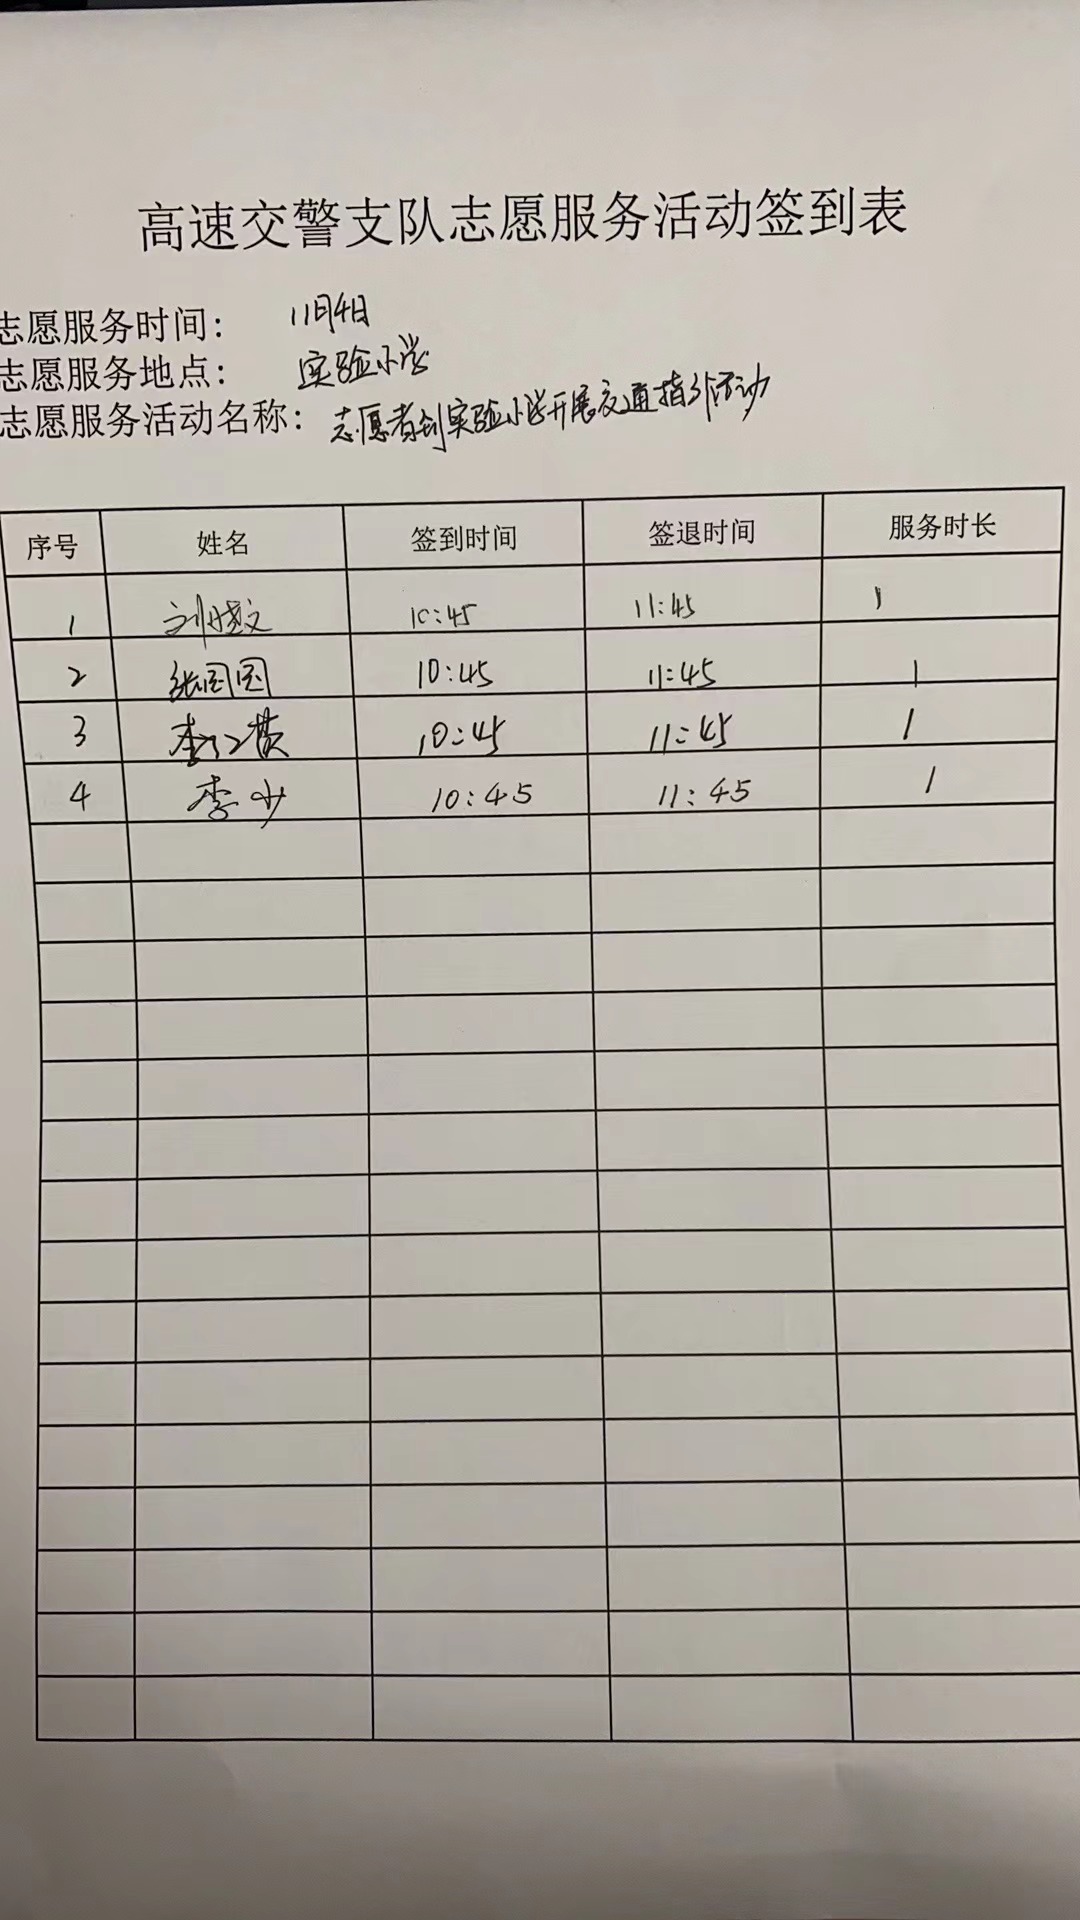 高速交警支队志愿服务活动签到表
志愿服务时间： 11月4日
志愿服务地点： 实验小学
志愿服务活动名称： 志愿者到实验小学开展交通指引活动
序号 姓名 签到时间 签退时间 服务时长
1 刘晓文 10:45 11:45 1
2 张园园 10:45 11:45 1
3 李 10:45 11:45 1
4 李少 10:45 11:45 1